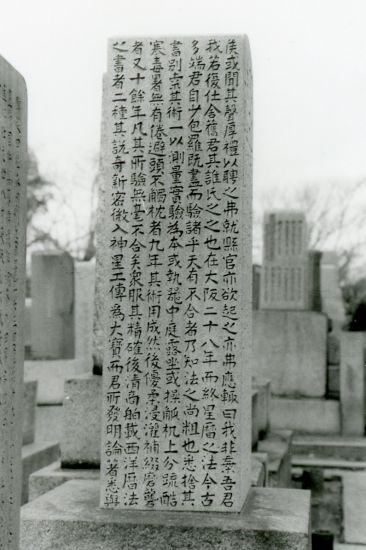 侯或聞其聲厚禮以聘之弗就縣官亦欲起之亦弗應輙曰我非棄吾君
我若復仕舍舊君其誰氏之之也在大阪二十八年而終星曆之法今古
多端君自少包羅既盡而驗諸乎天有不合者乃知法之尚粗也悉捨其
書別索其術一以測量實驗為本或執 中庭露坐或操觚机上分疏酷
寒毒暑無有倦避頭不觸枕者九年其術用成然後優柔浸灌補綴罅
者又十餘年凡其所驗無毫不合矣衆服其精確後清商舶載西洋曆法
之書者二種其說奇新密微入神星工傳為大寶而君所發明論著悉與